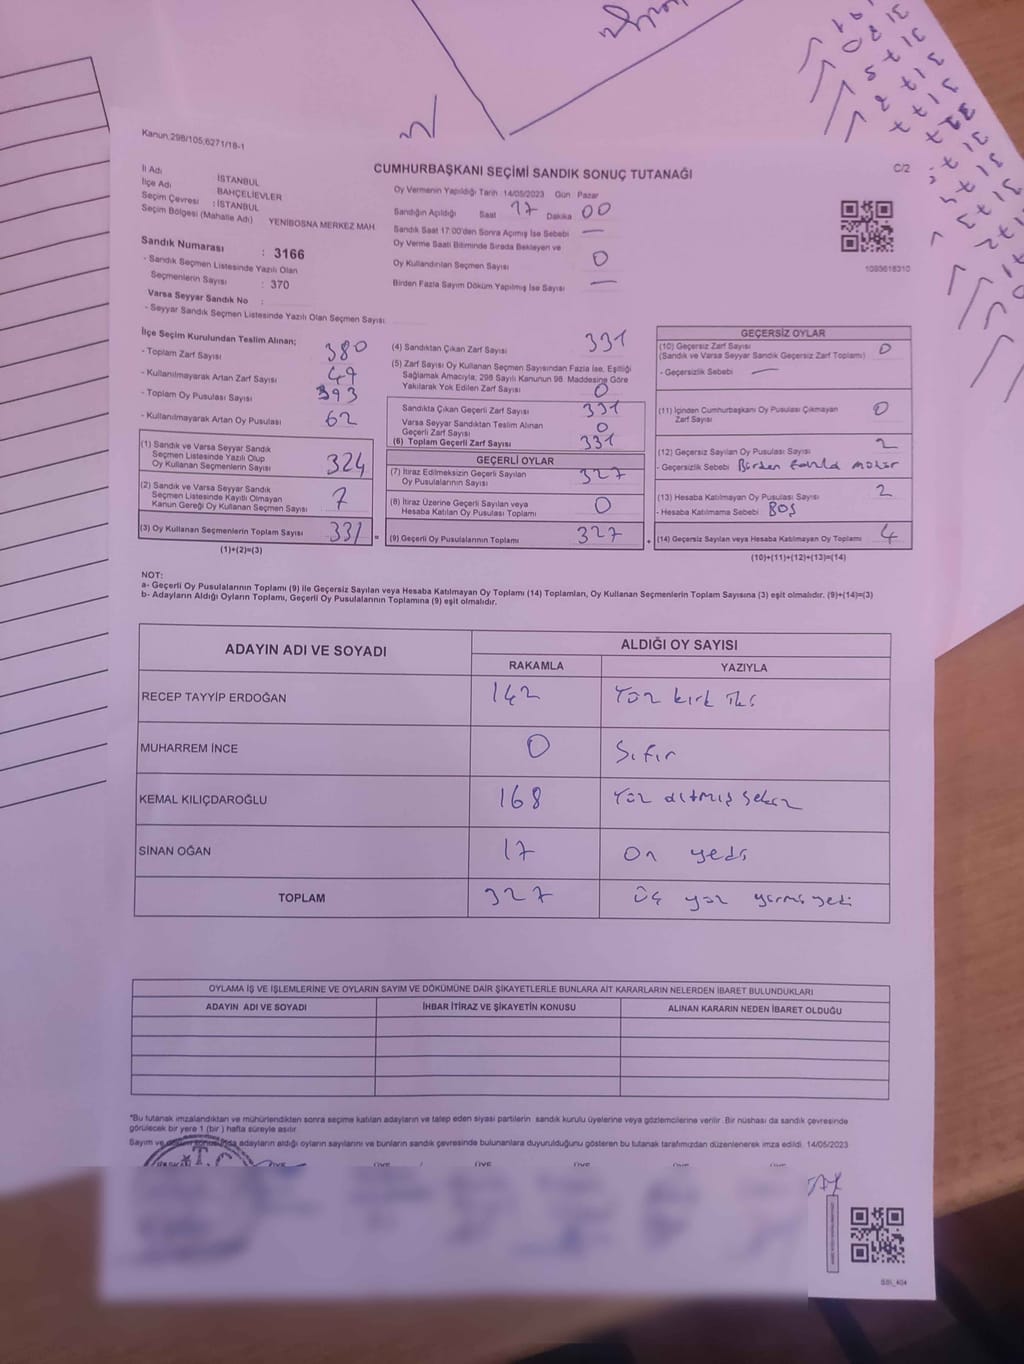 Kanun,298/105,6271/18-1
CUMHURBAŞKANI SEÇİMİ SANDIK SONUÇ TUTANAĞI
C/2
İl Adı
İSTANBUL
İlçe Adı
BAHÇELİEVLER
Seçim Çevresi : İSTANBUL
Seçim Bölgesi (Mahalle Adı) YENİBOSNA MERKEZ MAH
Sandık Numarası : 3166
- Sandık Seçmen Listesinde Yazılı Olan
Seçmenlerin Sayısı : 370
Varsa Seyyar Sandık No :
- Seyyar Sandık Seçmen Listesinde Yazılı Olan Seçmen Sayısı:
Oy Vermenin Yapıldığı Tarih 14/05/2023 Gün Pazar
Sandığın Açıldığı Saat 17 Dakika 00
Sandık Saat 17:00'den Sonra Açımış İse Sebebi —
Oy Verme Saati Bitiminde Sırada Bekleyen ve
Oy Kullandırılan Seçmen Sayısı 0
Birden Fazla Sayım Döküm Yapılmış İse Sayısı —
1093618310
İlçe Seçim Kurulundan Teslim Alınan;
- Toplam Zarf Sayısı 380
- Kullanılmayarak Artan Zarf Sayısı 49
- Toplam Oy Pusulası Sayısı 393
- Kullanılmayarak Artan Oy Pusulası 62
(1) Sandık ve Varsa Seyyar Sandık
Seçmen Listesinde Yazılı Olup
Oy Kullanan Seçmenlerin Sayısı 324
(2) Sandık ve Varsa Seyyar Sandık
Seçmen Listesinde Kayıtlı Olmayan
Kanun Gereği Oy Kullanan Seçmen Sayısı 7
(3) Oy Kullanan Seçmenlerin Toplam Sayısı 331 =
(1)+(2)=(3)
(4) Sandıktan Çıkan Zarf Sayısı 331
(5) Zarf Sayısı Oy Kullanan Seçmen Sayısından Fazla İse, Eşitliği
Sağlamak Amacıyla, 298 Sayılı Kanunun 98. Maddesine Göre
Yakılarak Yok Edilen Zarf Sayısı 0
Sandıkta Çıkan Geçerli Zarf Sayısı 331
Varsa Seyyar Sandıktan Teslim Alınan
Geçerli Zarf Sayısı 0
(6) Toplam Geçerli Zarf Sayısı 331
GEÇERLİ OYLAR
(7) İtiraz Edilmeksizin Geçerli Sayılan
Oy Pusulalarının Sayısı 327
(8) İtiraz Üzerine Geçerli Sayılan veya
Hesaba Katılan Oy Pusulası Toplamı 0
(9) Geçerli Oy Pusulalarının Toplamı 327 +
GEÇERSİZ OYLAR
(10) Geçersiz Zarf Sayısı
(Sandık ve Varsa Seyyar Sandık Geçersiz Zarf Toplamı) 0
- Geçersizlik Sebebi —
(11) İçinden Cumhurbaşkanı Oy Pusulası Çıkmayan
Zarf Sayısı 0
(12) Geçersiz Sayılan Oy Pusulası Sayısı 2
- Geçersizlik Sebebi Birden fazla mühür
(13) Hesaba Katılmayan Oy Pusulası Sayısı 2
- Hesaba Katılmama Sebebi BOŞ
(14) Geçersiz Sayılan veya Hesaba Katılmayan Oy Toplamı 4
(10)+(11)+(12)+(13)=(14)
NOT:
a- Geçerli Oy Pusulalarının Toplamı (9) ile Geçersiz Sayılan veya Hesaba Katılmayan Oy Toplamı (14) Toplamları, Oy Kullanan Seçmenlerin Toplam Sayısına (3) eşit olmalıdır. (9)+(14)=(3)
b- Adayların Aldığı Oyların Toplamı, Geçerli Oy Pusulalarının Toplamına (9) eşit olmalıdır.
ADAYIN ADI VE SOYADI
ALDIĞI OY SAYISI
RAKAMLA YAZIYLA
RECEP TAYYİP ERDOĞAN 142 Yüz kırk iki
MUHARREM İNCE 0 Sıfır
KEMAL KILIÇDAROĞLU 168 Yüz altmış sekiz
SİNAN OĞAN 17 On yedi
TOPLAM 327 Üç yüz yirmi yedi
OYLAMA İŞ VE İŞLEMLERİNE VE OYLARIN SAYIM VE DÖKÜMÜNE DAİR ŞİKAYETLERLE BUNLARA AİT KARARLARIN NELERDEN İBARET BULUNDUKLARI
ADAYIN ADI VE SOYADI İHBAR İTİRAZ VE ŞİKAYETİN KONUSU ALINAN KARARIN NEDEN İBARET OLDUĞU
*Bu tutanak imzalandıktan ve mühürlendikten sonra seçime katılan adayların ve talep eden siyasi partilerin sandık kurulu üyelerine veya gözlemcilerine verilir. Bir nüshası da sandık çevresinde
görülecek bir yere 1 (bir) hafta süreyle asılır.
Sayım ve döküm sonucunda adayların aldığı oyların sayılarını ve bunların sandık çevresinde bulunanlara duyurulduğunu gösteren bu tutanak tarafımızdan düzenlenerek imza edildi. 14/05/2023
T.C.
SSI_404